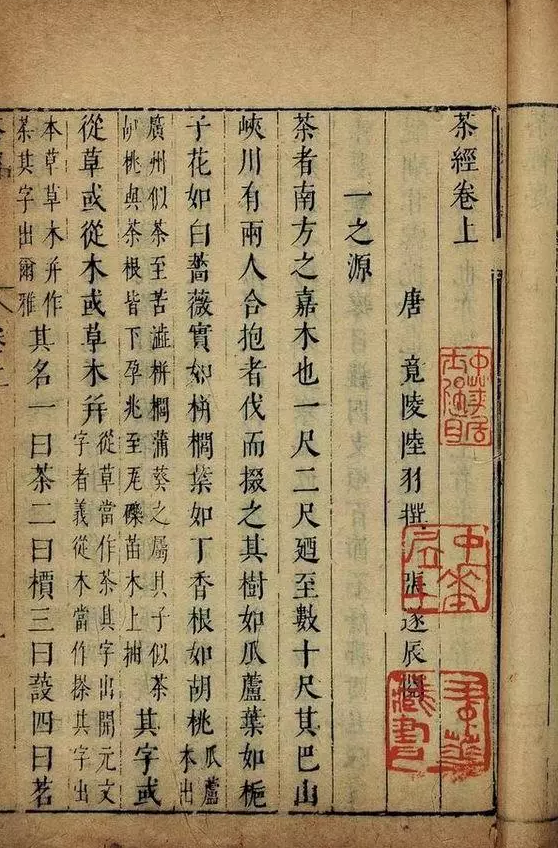 茶經卷上
唐 竟陵陸羽撰 張遂辰閱
一之源
茶者南方之嘉木也一尺二尺廼至數十尺其巴山
峽川有兩人合抱者伐而掇之其樹如瓜蘆葉如梔
子花如白薔薇實如栟櫚葉如丁香根如胡桃瓜蘆木出
廣州似茶至苦澁栟櫚蒲葵之屬其子似茶
胡桃與茶根皆下孕兆至瓦礫苗木上抽其字或
從草或從木或草木并從草當作茶其字出開元文
字者義從木當作搽其字出
本草草木并作
荼其字出爾雅其名一曰茶二曰檟三曰蔎四曰茗
中華居士